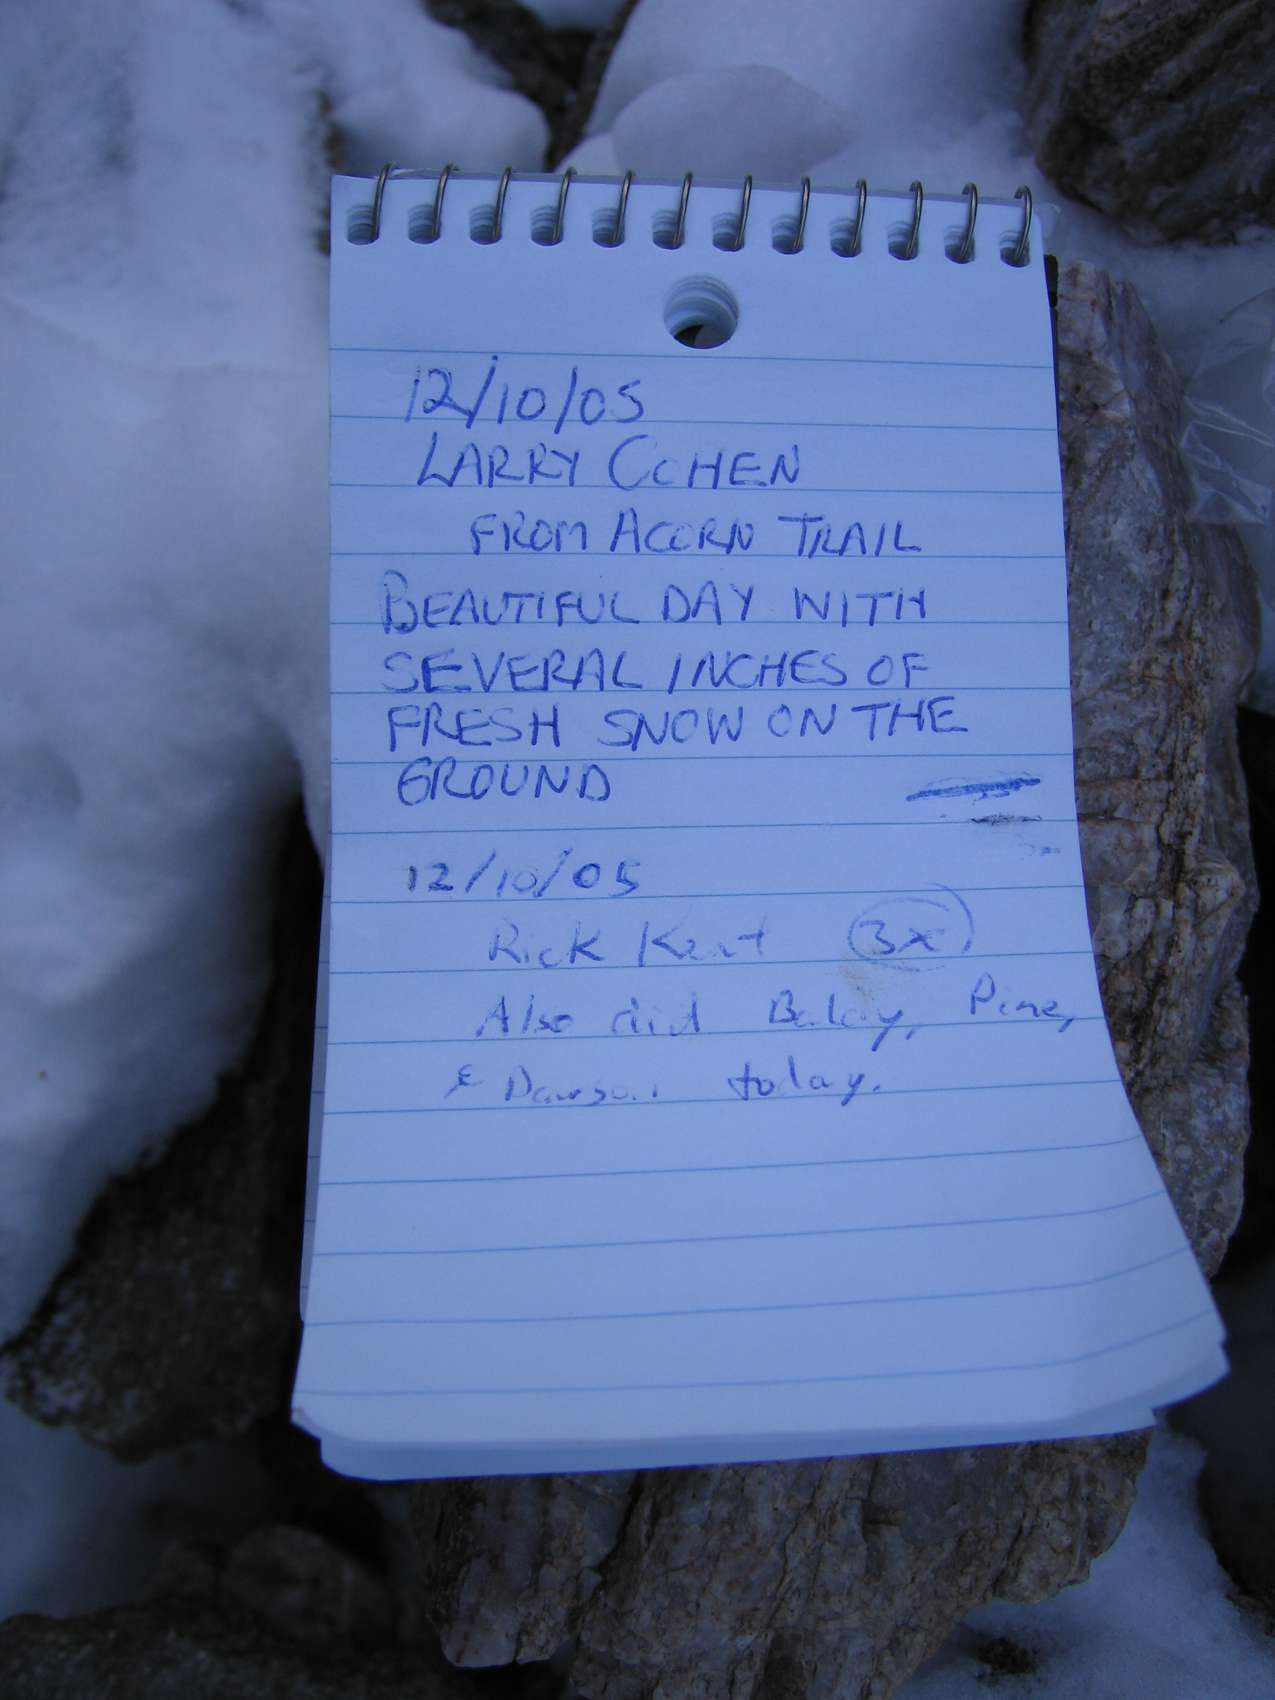 12/10/05
LARRY COHEN
FROM ACORN TRAIL
BEAUTIFUL DAY WITH
SEVERAL INCHES OF
FRESH SNOW ON THE
GROUND
12/10/05
Rick Kent 3x
Also did Balay, Pine,
& Dawson today.